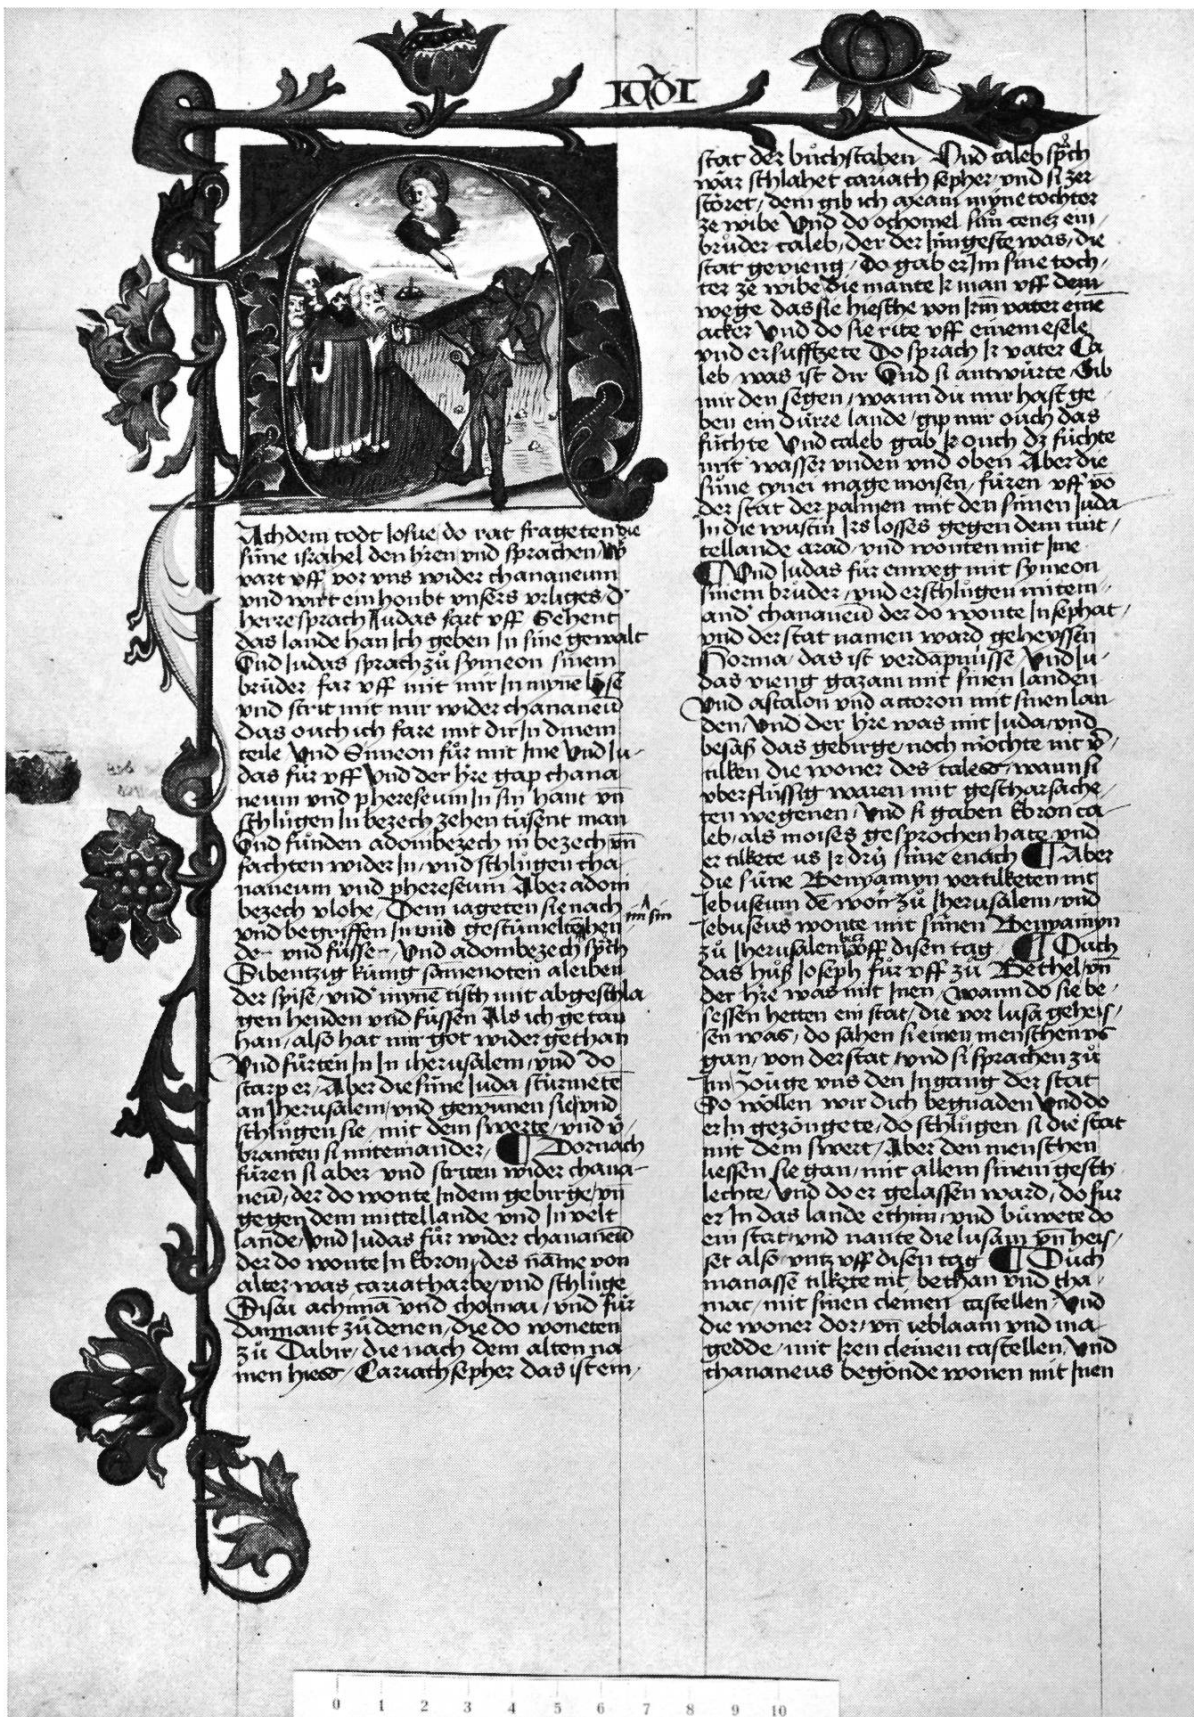 Achdem todt Iosue do rat frageten die
süne israhel den hren vnd sprachen / w̄
vart vff vor vns wider chananeum
vnd wirt ein houbt vnsers vrliges / d'
herre sprach Iudas fart vff Sehent
das lande han Ich geben In sine gewalt
Vnd Iudas sprach zů symeon sinem
brůder far vff mit mir In myne lose
vnd strit mit mir wider chananeū
das ouch ich fare mit dir In dinem
teile Vnd Simeon fůr mit Ime Vnd Iu-
das fůr vff Vnd der hr̄e gap chana
neum vnd phereseum In sin hant vn̄
schlůgen In bezech zehen tusent man
Vnd funden adombezech in bezech vn̄
fachten wider In / vnd schlůgen cha
naneum vnd phereseum Aber adom
bezech vlohe / Dem iageten sie nach
vnd begriffen In vnd gestümelten hen
de vnd füsse / Vnd adombezech sp̄ch
Sibentzig kunig samenoten aleiben
der spise / vnd mynē tisch mit abgeschla
gen henden vnd füssen Als ich getan
han / also hat mir got wider gethan
Vnd fürten In In iherusalem / vnd do
starp er / Aber die süne Iuda sturmete
an Iherusalem / vnd gewunen sie / vnd
schlůgen sie / mit dem swerte / vnd v̄
branten si miteinander / ¶ Dornach
füren si aber vnd striten wider chana-
neū / der do wonte In dem gebirge / vn̄
gegen dem mittellande vnd In velt
lande / Vnd Iudas fůr wider chananeū
der do wonte In Ebron / des name von
alter was cariatharbe / vnd schlůge
Sisai achimā vnd cholmai / vnd fůr
dannant zů denen / die do woneten
zů Dabir / die nach dem alten na
men hiess / Cariathsepher das ist ein /
stat der bůchstaben Vnd caleb sp̄ch
wår schlahet cariath sepher vnd si zer
störet / dem gib ich axam myne tochter
ze wibe Vnd do othomel sun cenez ein
brůder caleb / der der Iungeste was / die
stat gevieng / Do gab er Im sine toch /
ter ze wibe die mante Ir man vff dem
wege das sie hiesche von Irm vater eine
acker Vnd do sie rite vff einem esele
vnd ersufftzete Do sprach Ir vater Ca
leb was ist dir Vnd si antwürte Gib
mir den segen / wann du mir hast ge
ben ein dürre lande / gip mir ouch das
füchte Vnd caleb gab Ir ouch dz füchte
mit wasser vnden vnd oben Aber die
süne cynei mage moisen / füren vff vō
der stat der palmen mit den sünen Iuda
In die wustin Irs losses gegen dem mit /
tellande arad / vnd wonten mit Ime
¶ Vnd Iudas fůr enweg mit symeon
sinem brůder / vnd erschlůgen mitein-
and' chananeū der do wonte In sephat /
vnd der stat namen ward geheyssen
Horma / das ist verdāpnüsse / Vnd Iu-
das vieng gazam mit sinen landen
Vnd astalon vnd accoron mit sinen lan
den / Vnd der hr̄e was mit Iuda / vnd
besaß das gebirge / noch mochte nit v̄
tilken die woner des tales / wann si
vberflüssig waren mit gescharsache-
ten wegenen / Vnd si gaben Ebron ca
leb / als moises gesprochen hate vnd
er tilkete us Ir drý süne enach ¶ Aber
die süne Benyamyn vertilketen nit
Iebuseum dē won' zů Iherusalem / vnd
Iebuseus wonte mit sünen Benyamyn
zů Iherusalem bitz vff disen tag / ¶ Ouch
das huß Ioseph fůr vff zů Bethel / vn̄
der hr̄e was mit Inen / Wann do sie be-
sessen hetten ein stat / die vor lusa geheis-
sen was / do sahen si einen menschen vs
gan / von der stat / vnd si sprachen zů
Im Zouge vns den Ingang der stat
So wöllen wir dich begnaden Vnd do
er In gezöngete / do schlůgen si die stat
mit dem swert / Aber den menschen
liessen sie gan / mit allem sinem gesch
lechte / Vnd do er gelassen ward / do fur
er In das lande ethim / vnd buwete do
ein stat / vnd nante die lusam vn̄ heis-
set also / vntz vff disen tag ¶ Ouch
manasse tilkete nit bethan vnd tha-
nac / mit sinen cleinen castellen / Vnd
die woner dor / vn̄ ieblaam vnd ma-
gedde / mit Iren cleinen castellen / Vnd
chananeus begönde wonen mit Inen
0 1 2 3 4 5 6 7 8 9 10